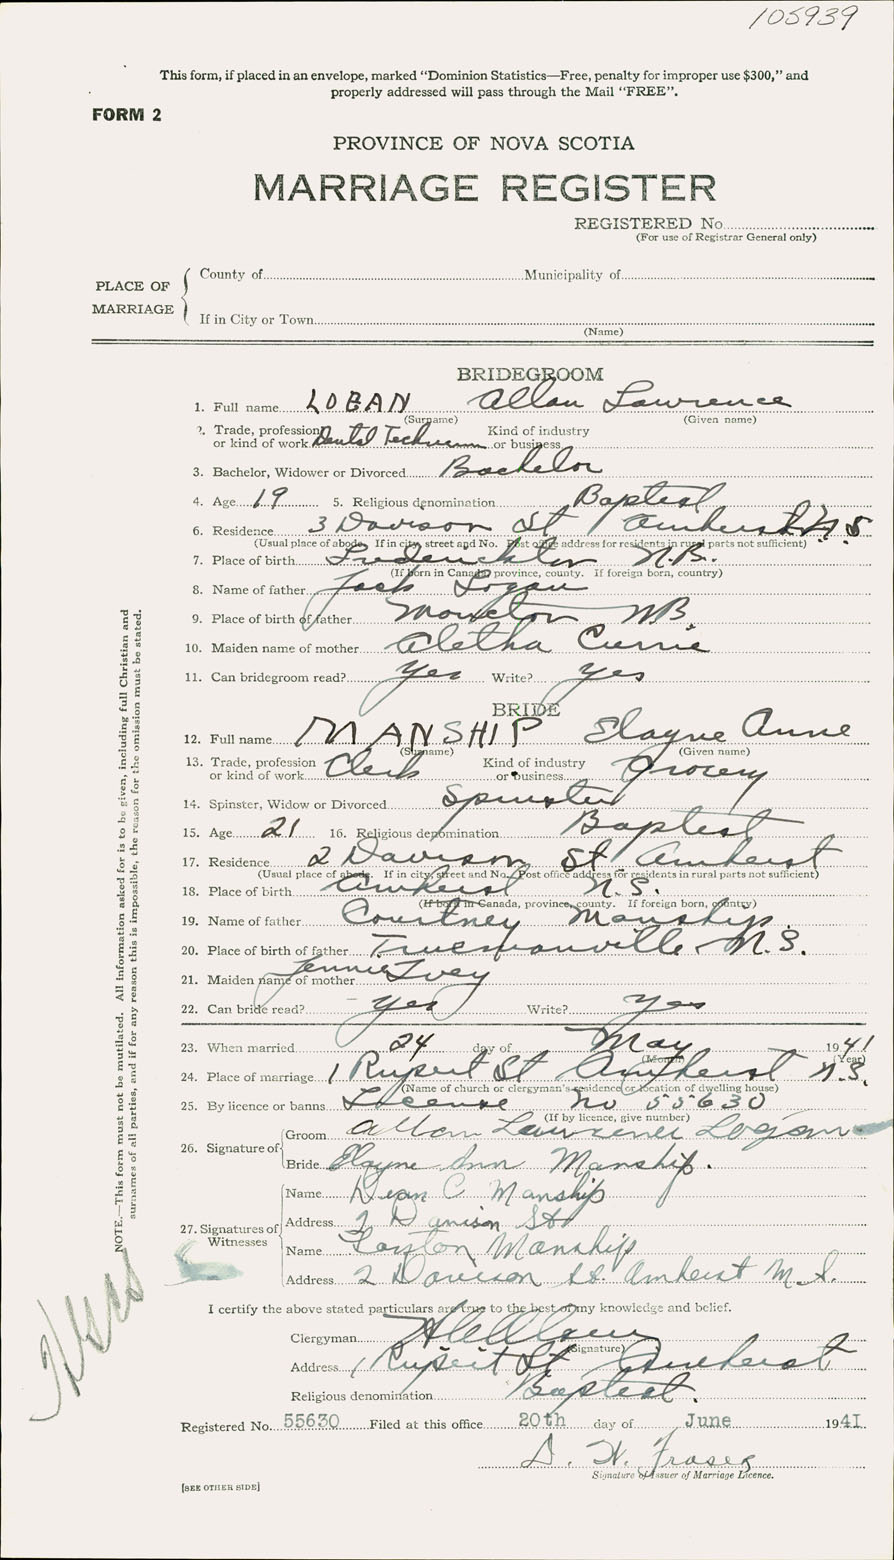 105939
This form, if placed in an envelope, marked "Dominion Statistics—Free, penalty for improper use $300," and
properly addressed will pass through the Mail "FREE".
FORM 2
PROVINCE OF NOVA SCOTIA
MARRIAGE REGISTER
REGISTERED No.
(For use of Registrar General only)
PLACE OF MARRIAGE
County of Municipality of
If in City or Town
(Name)
BRIDEGROOM
1. Full name LOGAN Allan Lawrence
(Surname) (Given name)
2. Trade, profession or kind of work Dental Technician Kind of industry or business
3. Bachelor, Widower or Divorced Bachelor
4. Age 19 5. Religious denomination Baptist
6. Residence 3 Davison St Amherst N.S
(Usual place of abode. If in city, street and No. Post office address for residents in rural parts not sufficient)
7. Place of birth Fredericton N.B.
(If born in Canada, province, county. If foreign born, country)
8. Name of father Jack Logan
9. Place of birth of father Moncton NB.
10. Maiden name of mother Aletha Currie
11. Can bridegroom read? Yes Write? yes
BRIDE
12. Full name MANSHIP Elayne Anne
(Surname) (Given name)
13. Trade, profession or kind of work Clerk Kind of industry or business Grocery
14. Spinster, Widow or Divorced Spinster
15. Age 21 16. Religious denomination Baptist
17. Residence 2 Davison St Amherst
(Usual place of abode. If in city, street and No. Post office address for residents in rural parts not sufficient)
18. Place of birth Amherst N.S.
(If born in Canada, province, county. If foreign born, country)
19. Name of father Courtney Manship
20. Place of birth of father Truemanville N.S.
21. Maiden name of mother Jennie Ivey
22. Can bride read? yes Write? yes
23. When married 24 day of May 1941
(Month) (Year)
24. Place of marriage 1 Rupert St Amherst N.S.
(Name of church or clergyman's residence or location of dwelling house)
25. By licence or banns License No 55630
(If by licence, give number)
26. Signature of
Groom Allan Lawrence Logan
Bride Elayne Ann Manship.
27. Signatures of Witnesses
Name Dean C Manship
Address 2 Davison St
Name Layton Manship
Address 2 Davison St. Amherst N.S.
I certify the above stated particulars are true to the best of my knowledge and belief.
Clergyman
(Signature)
Address 1 Rupert St Amherst
Religious denomination Baptist.
Registered No. 55630 Filed at this office 20th day of June 1941
D. W. Fraser
Signature of Issuer of Marriage Licence.
[SEE OTHER SIDE]
NOTE.—This form must not be mutilated. All information asked for is to be given, including full Christian and
surnames of all parties, and if for any reason this is impossible, the reason for the omission must be stated.